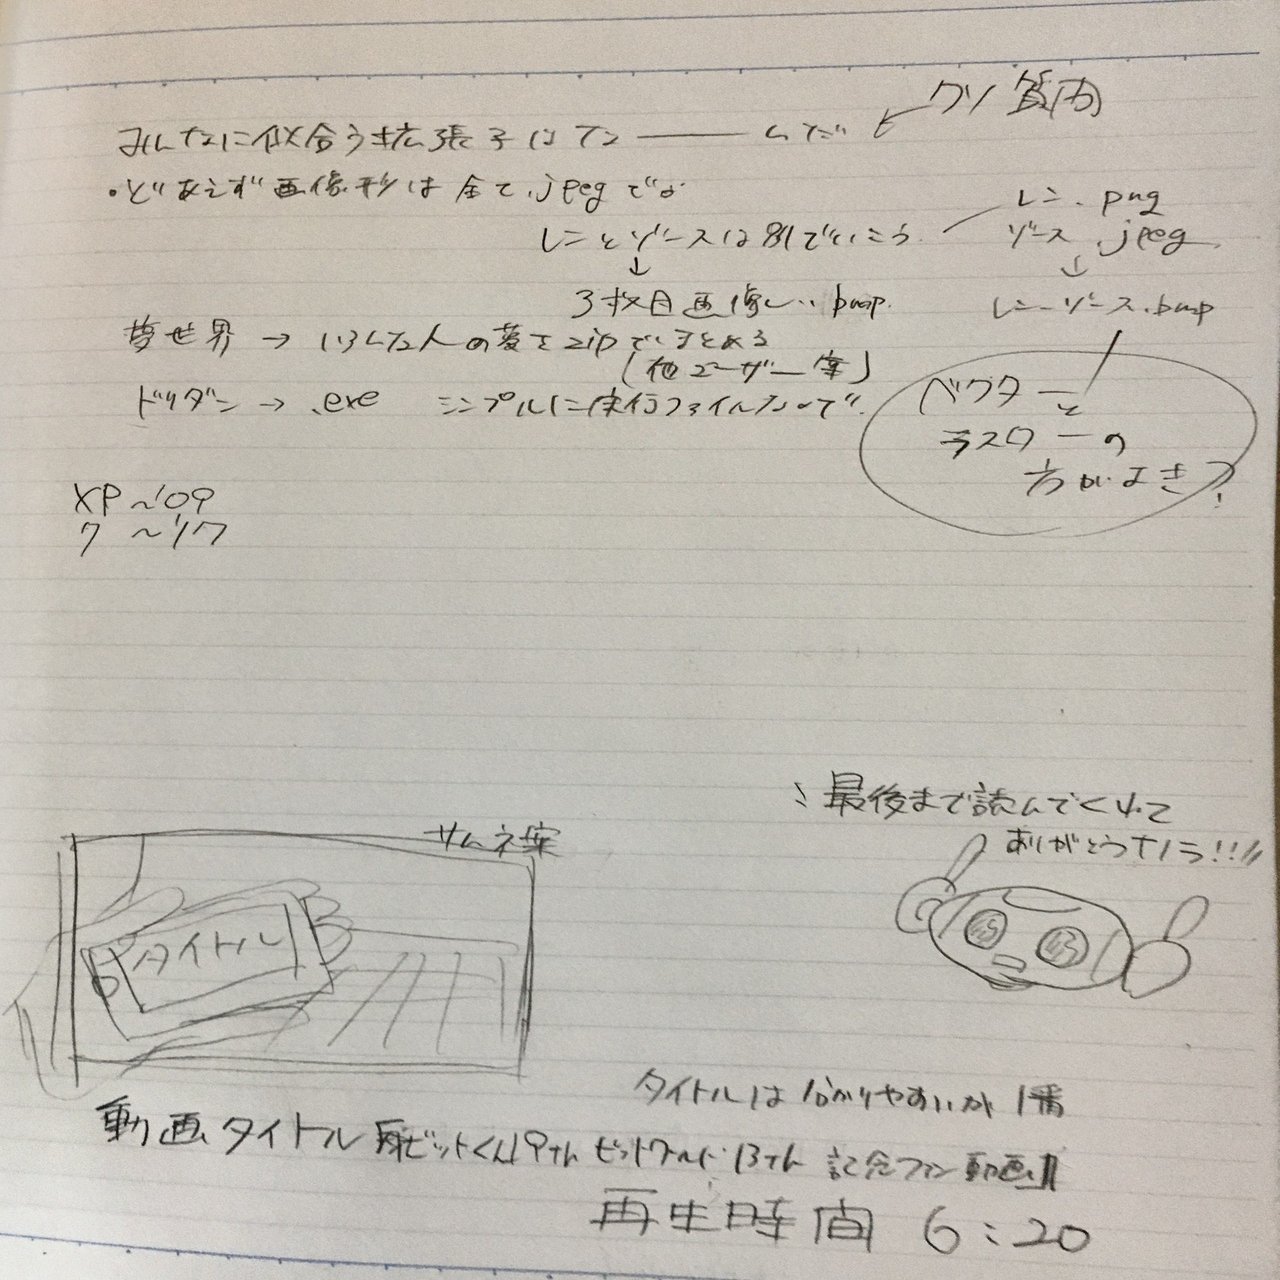 クソ質問
みんなに似合う拡張子はな ── んだ
・とりあえず画像形は全て.jpegでな
レニとゾースは別でいこう
レニ.png
ゾース.jpeg
↓
↓
3枚目画像し… bmp.
レニーゾース.bmp
夢世界 → いろんな人の夢をzipでまとめる
(他ユーザー等)
ドリダン → .exe シンプルに実行ファイルなので
ベクターと
ラスターの
方がよき?
XP ~'09
7 ~'17
最後まで読んでくれて
ありがとうナノラ!!
サムネ案
タイトル
タイトルは分かりやすいが1番
動画タイトル ビットくん19th ビットワールド13th 記念ファン動画
再生時間 6:20